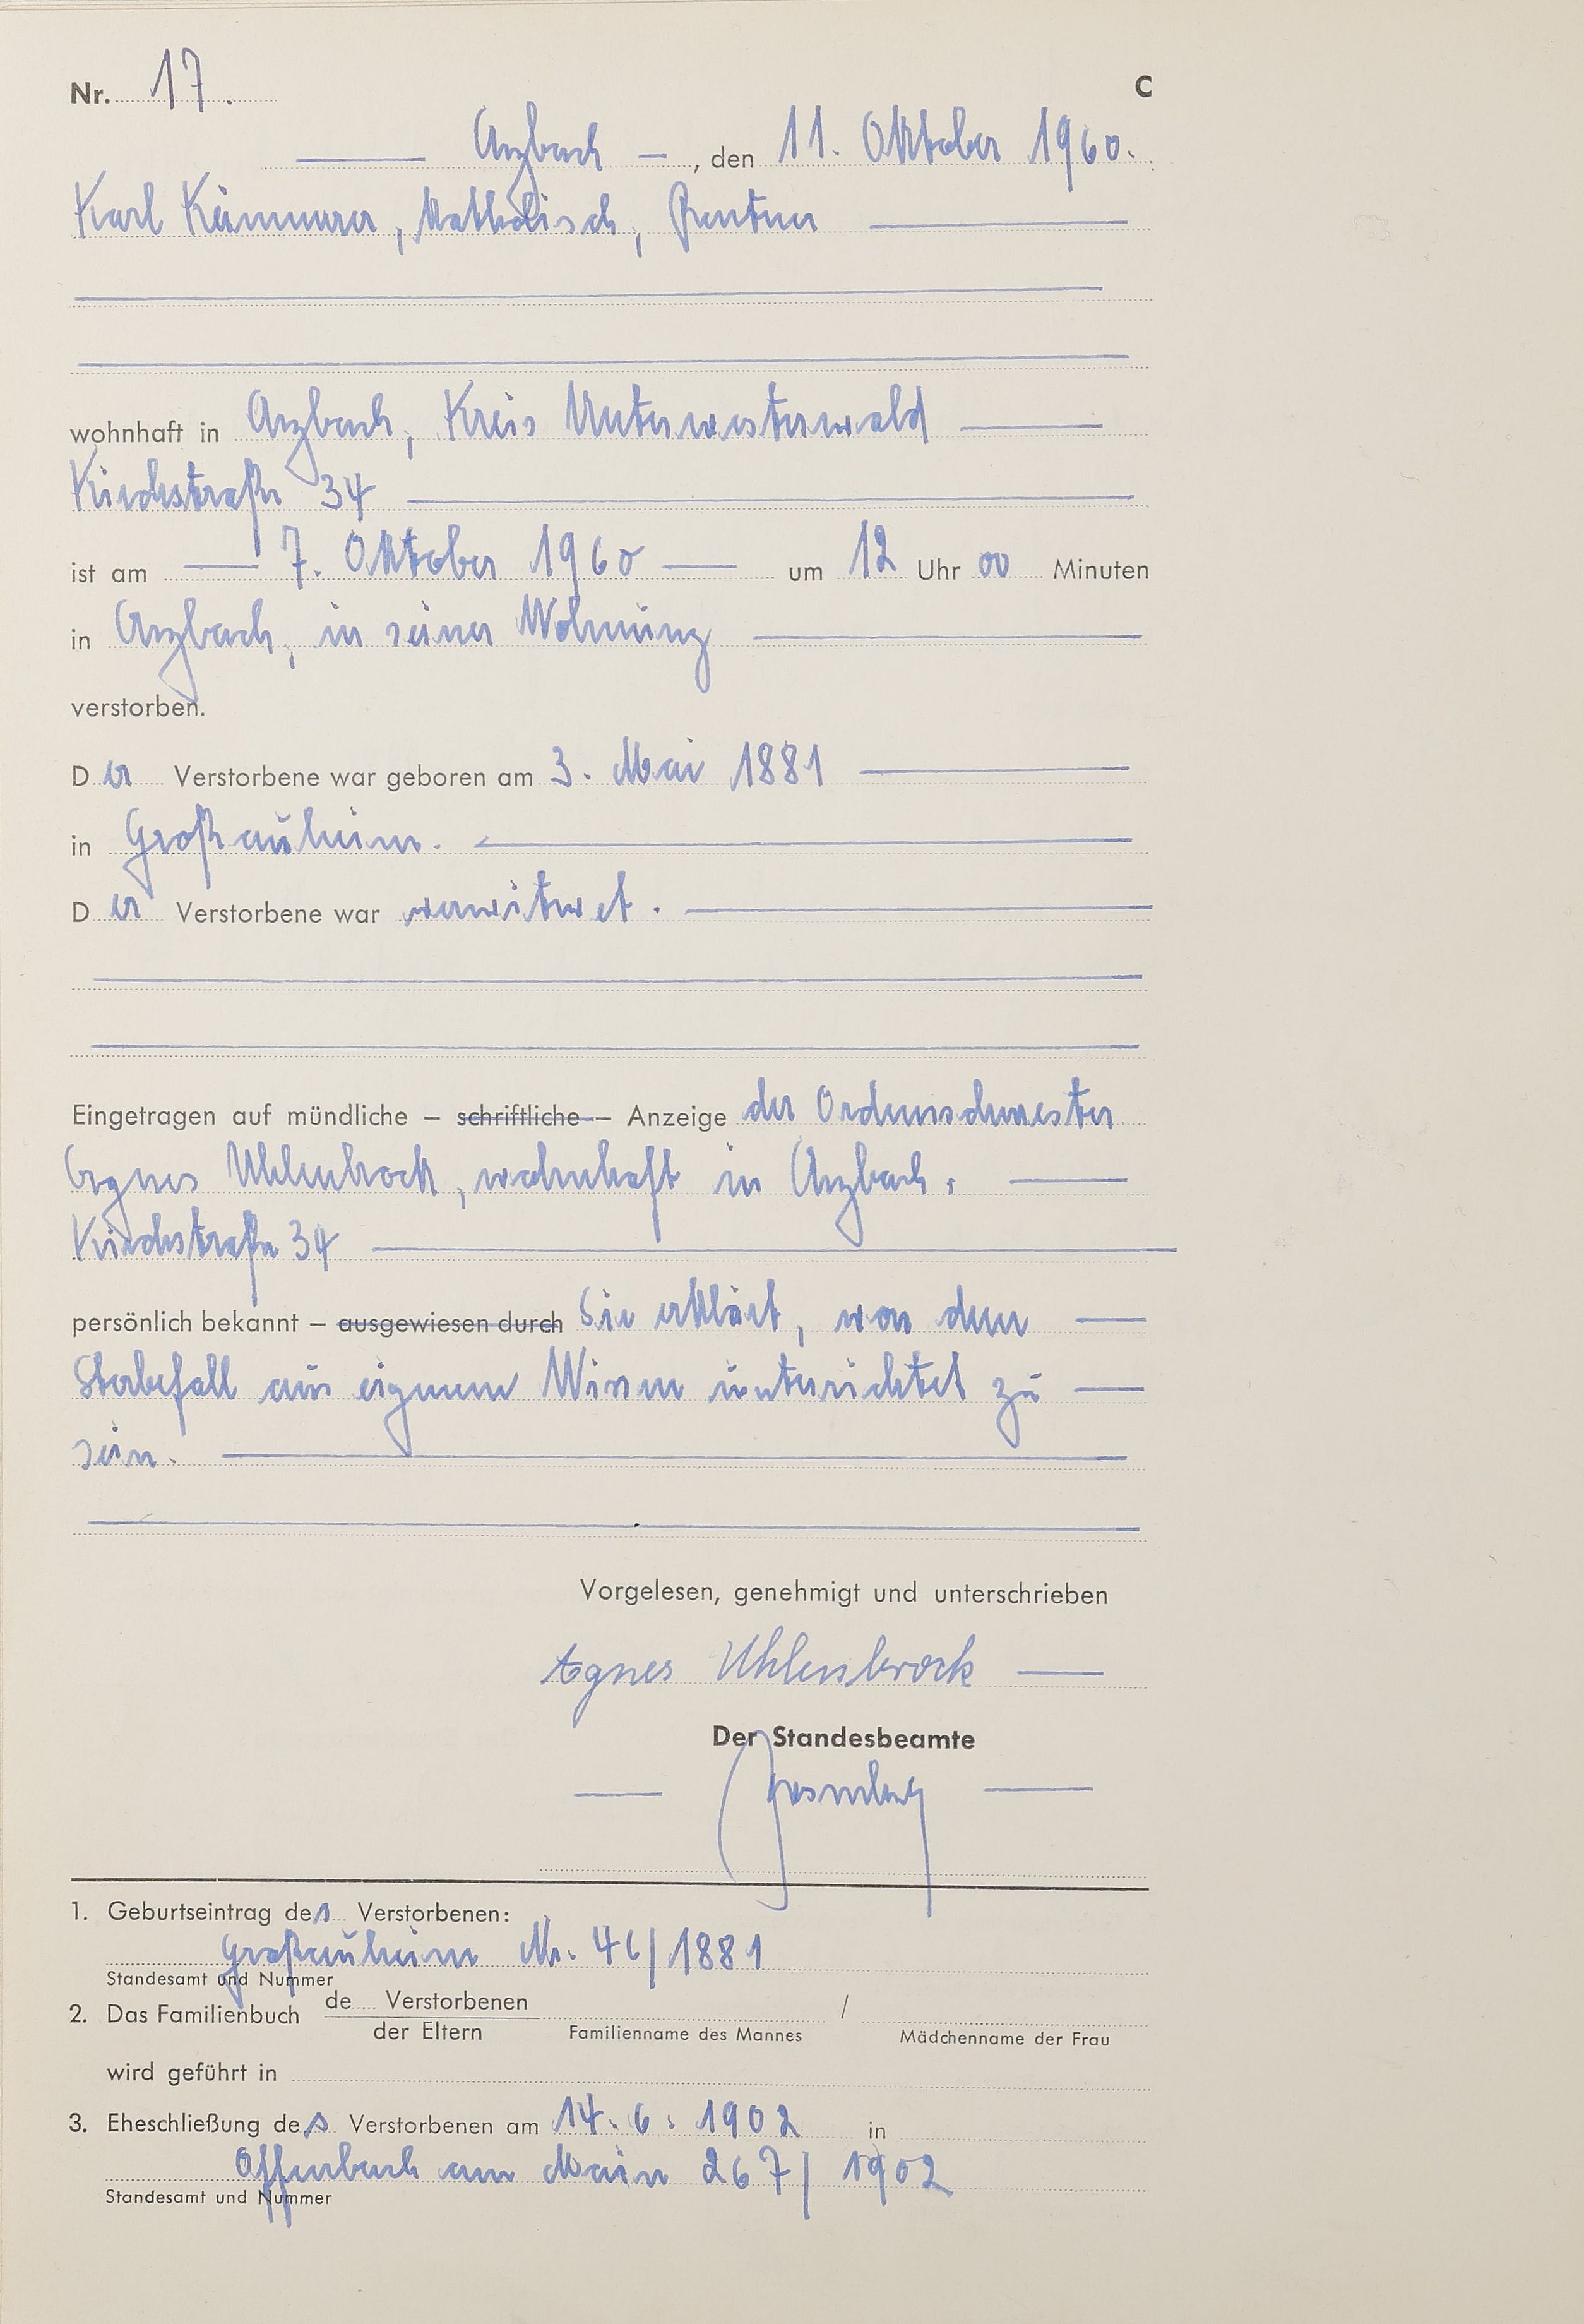 Nr. 17. C
— Arzbach —, den 11. Oktober 1960.
Karl Kämmerer, katholisch, Rentner —
wohnhaft in Arzbach, Kreis Unterwesterwald —
Kirchstraße 34 —
ist am — 7. Oktober 1960 — um 12 Uhr 00 Minuten
in Arzbach, in seiner Wohnung —
verstorben.
Der Verstorbene war geboren am 3. Mai 1881 —
in Großauheim. —
Der Verstorbene war verwitwet. —
Eingetragen auf mündliche – schriftliche – Anzeige der Ordensschwester
Agnes Uhlenbrock, wohnhaft in Arzbach, —
Kirchstraße 34 —
persönlich bekannt – ausgewiesen durch Sie erklärt, von dem —
Sterbefall aus eigenem Wissen unterrichtet zu —
sein. —
Vorgelesen, genehmigt und unterschrieben
Agnes Uhlenbrock —
Der Standesbeamte
1. Geburtseintrag des Verstorbenen:
Großauheim Nr. 46/1881
Standesamt und Nummer
2. Das Familienbuch de.... Verstorbenen /
der Eltern Familienname des Mannes Mädchenname der Frau
wird geführt in
3. Eheschließung des Verstorbenen am 14. 6. 1902 in
Offenbach am Main 267/1902
Standesamt und Nummer